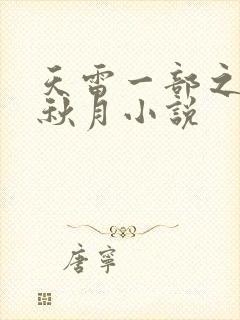 天雷一部之
秋月小說
唐寧